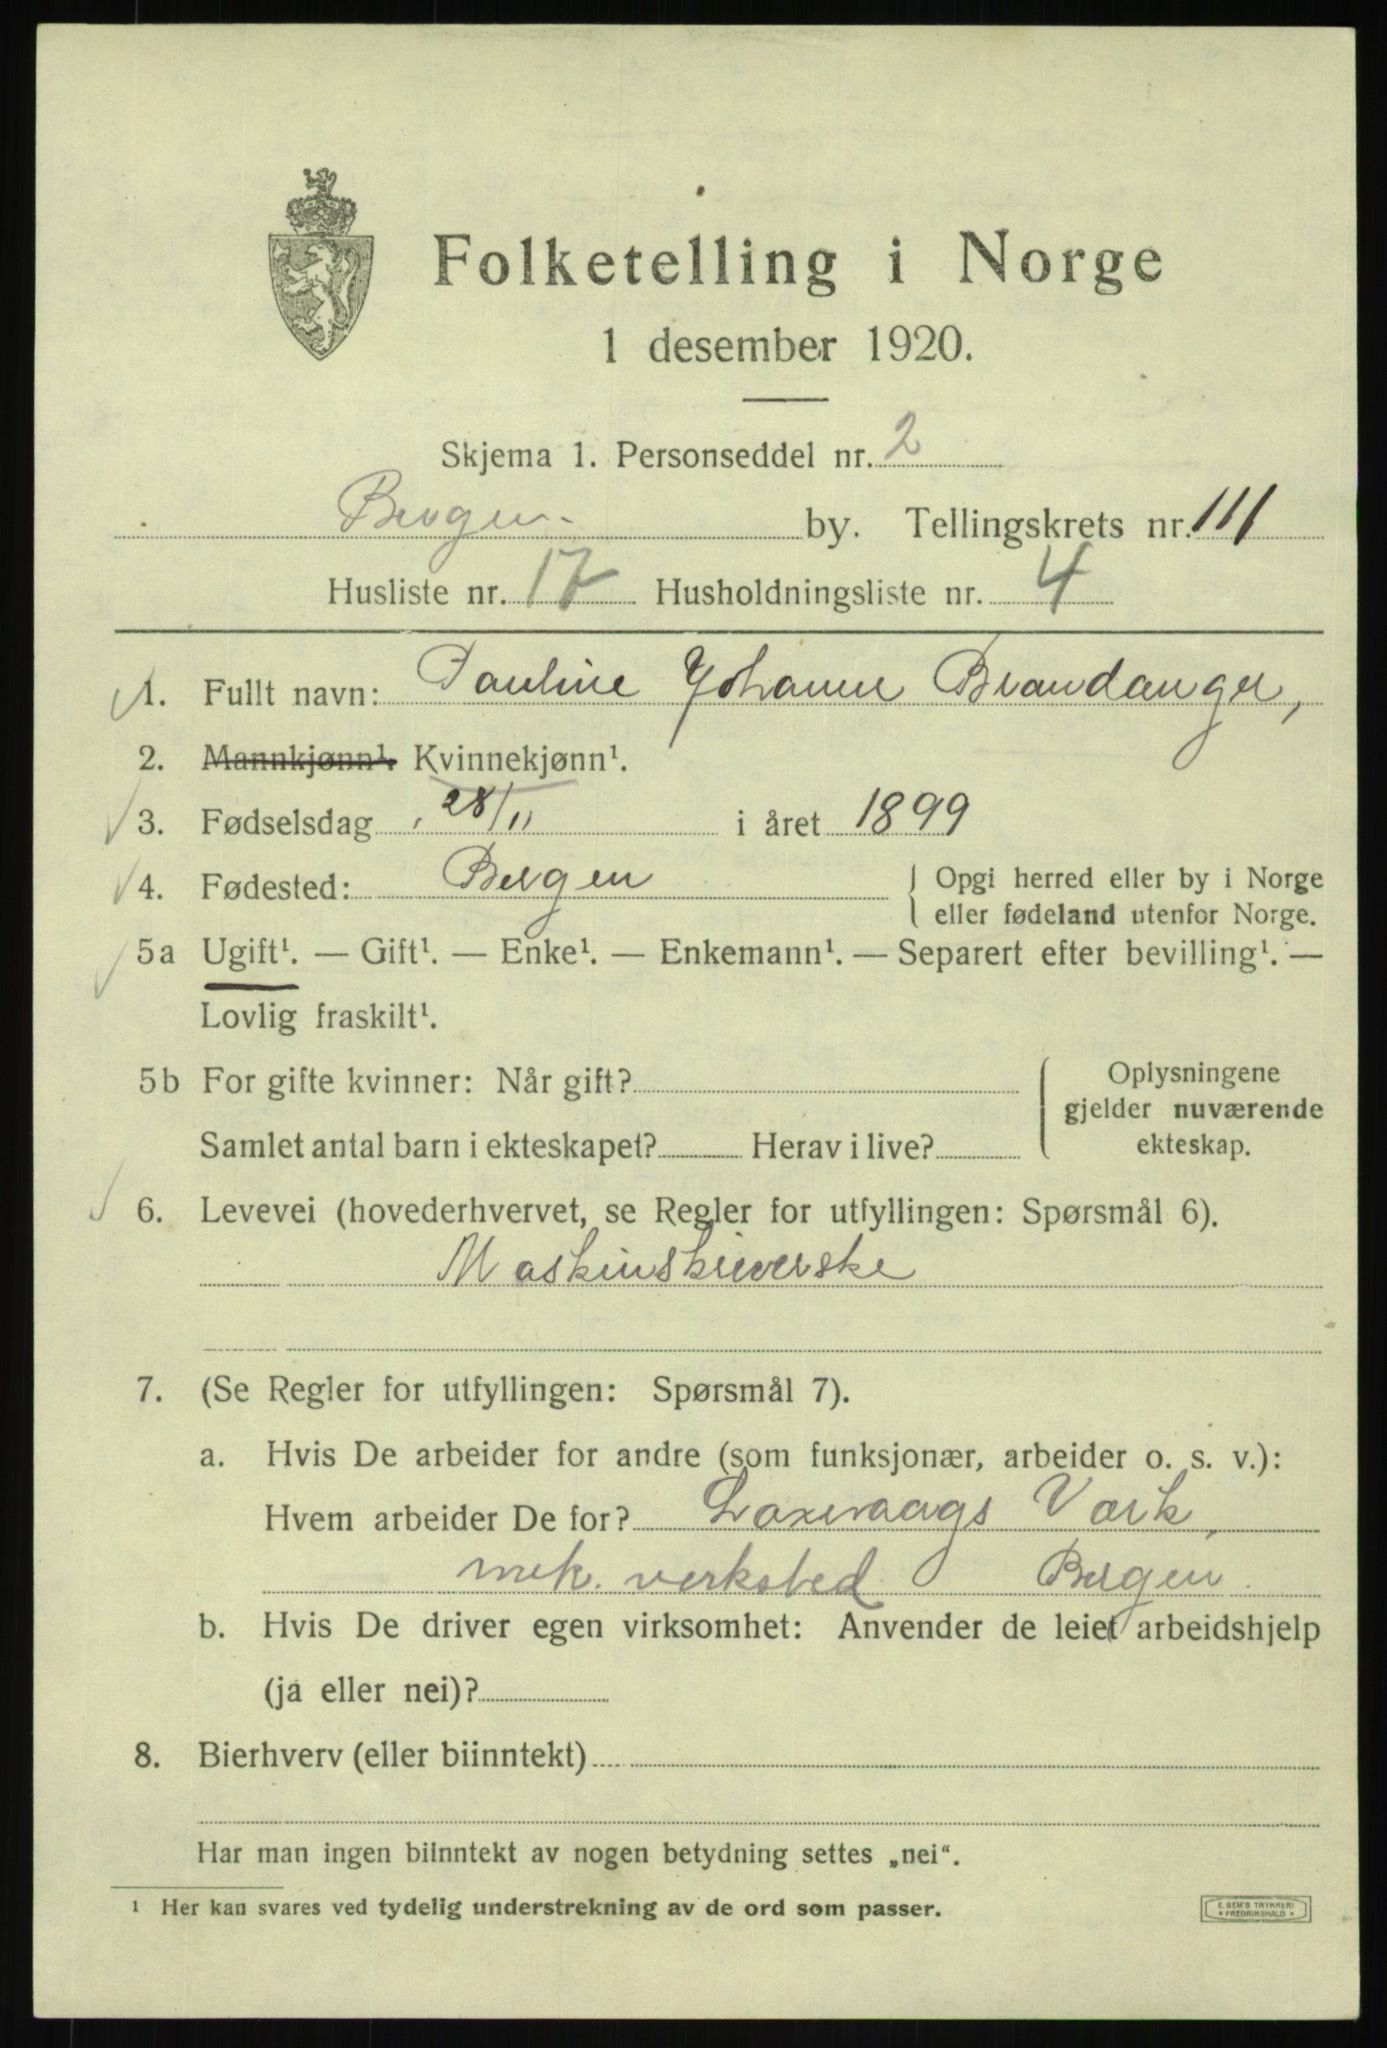 Folketelling i Norge
1 desember 1920.
Skjema 1. Personseddel nr. 2
Bergen. by. Tellingskrets nr. 111
Husliste nr. 17 Husholdningsliste nr. 4
1. Fullt navn: Pauline Johanne Brandanger,
2. Mannkjønn¹. Kvinnekjønn¹.
3. Fødselsdag 28/11 i året 1899
4. Fødested: Bergen { Opgi herred eller by i Norge
eller fødeland utenfor Norge.
5a Ugift¹. — Gift¹. — Enke¹. — Enkemann¹. — Separert efter bevilling¹. —
Lovlig fraskilt¹.
5b For gifte kvinner: Når gift? { Oplysningene
gjelder nuværende
Samlet antal barn i ekteskapet? Herav i live? ekteskap.
6. Levevei (hovederhvervet, se Regler for utfyllingen: Spørsmål 6).
Maskinskriverske
7. (Se Regler for utfyllingen: Spørsmål 7).
a. Hvis De arbeider for andre (som funksjonær, arbeider o. s. v.):
Hvem arbeider De for? Laxevaags Værk,
mek. verksted Bergen.
b. Hvis De driver egen virksomhet: Anvender de leiet arbeidshjelp
(ja eller nei)?
8. Bierhverv (eller biinntekt)
Har man ingen biinntekt av nogen betydning settes „nei“.
¹ Her kan svares ved tydelig understrekning av de ord som passer.
E. SEM'S TRYKKERI
* FREDRIKSHALD *